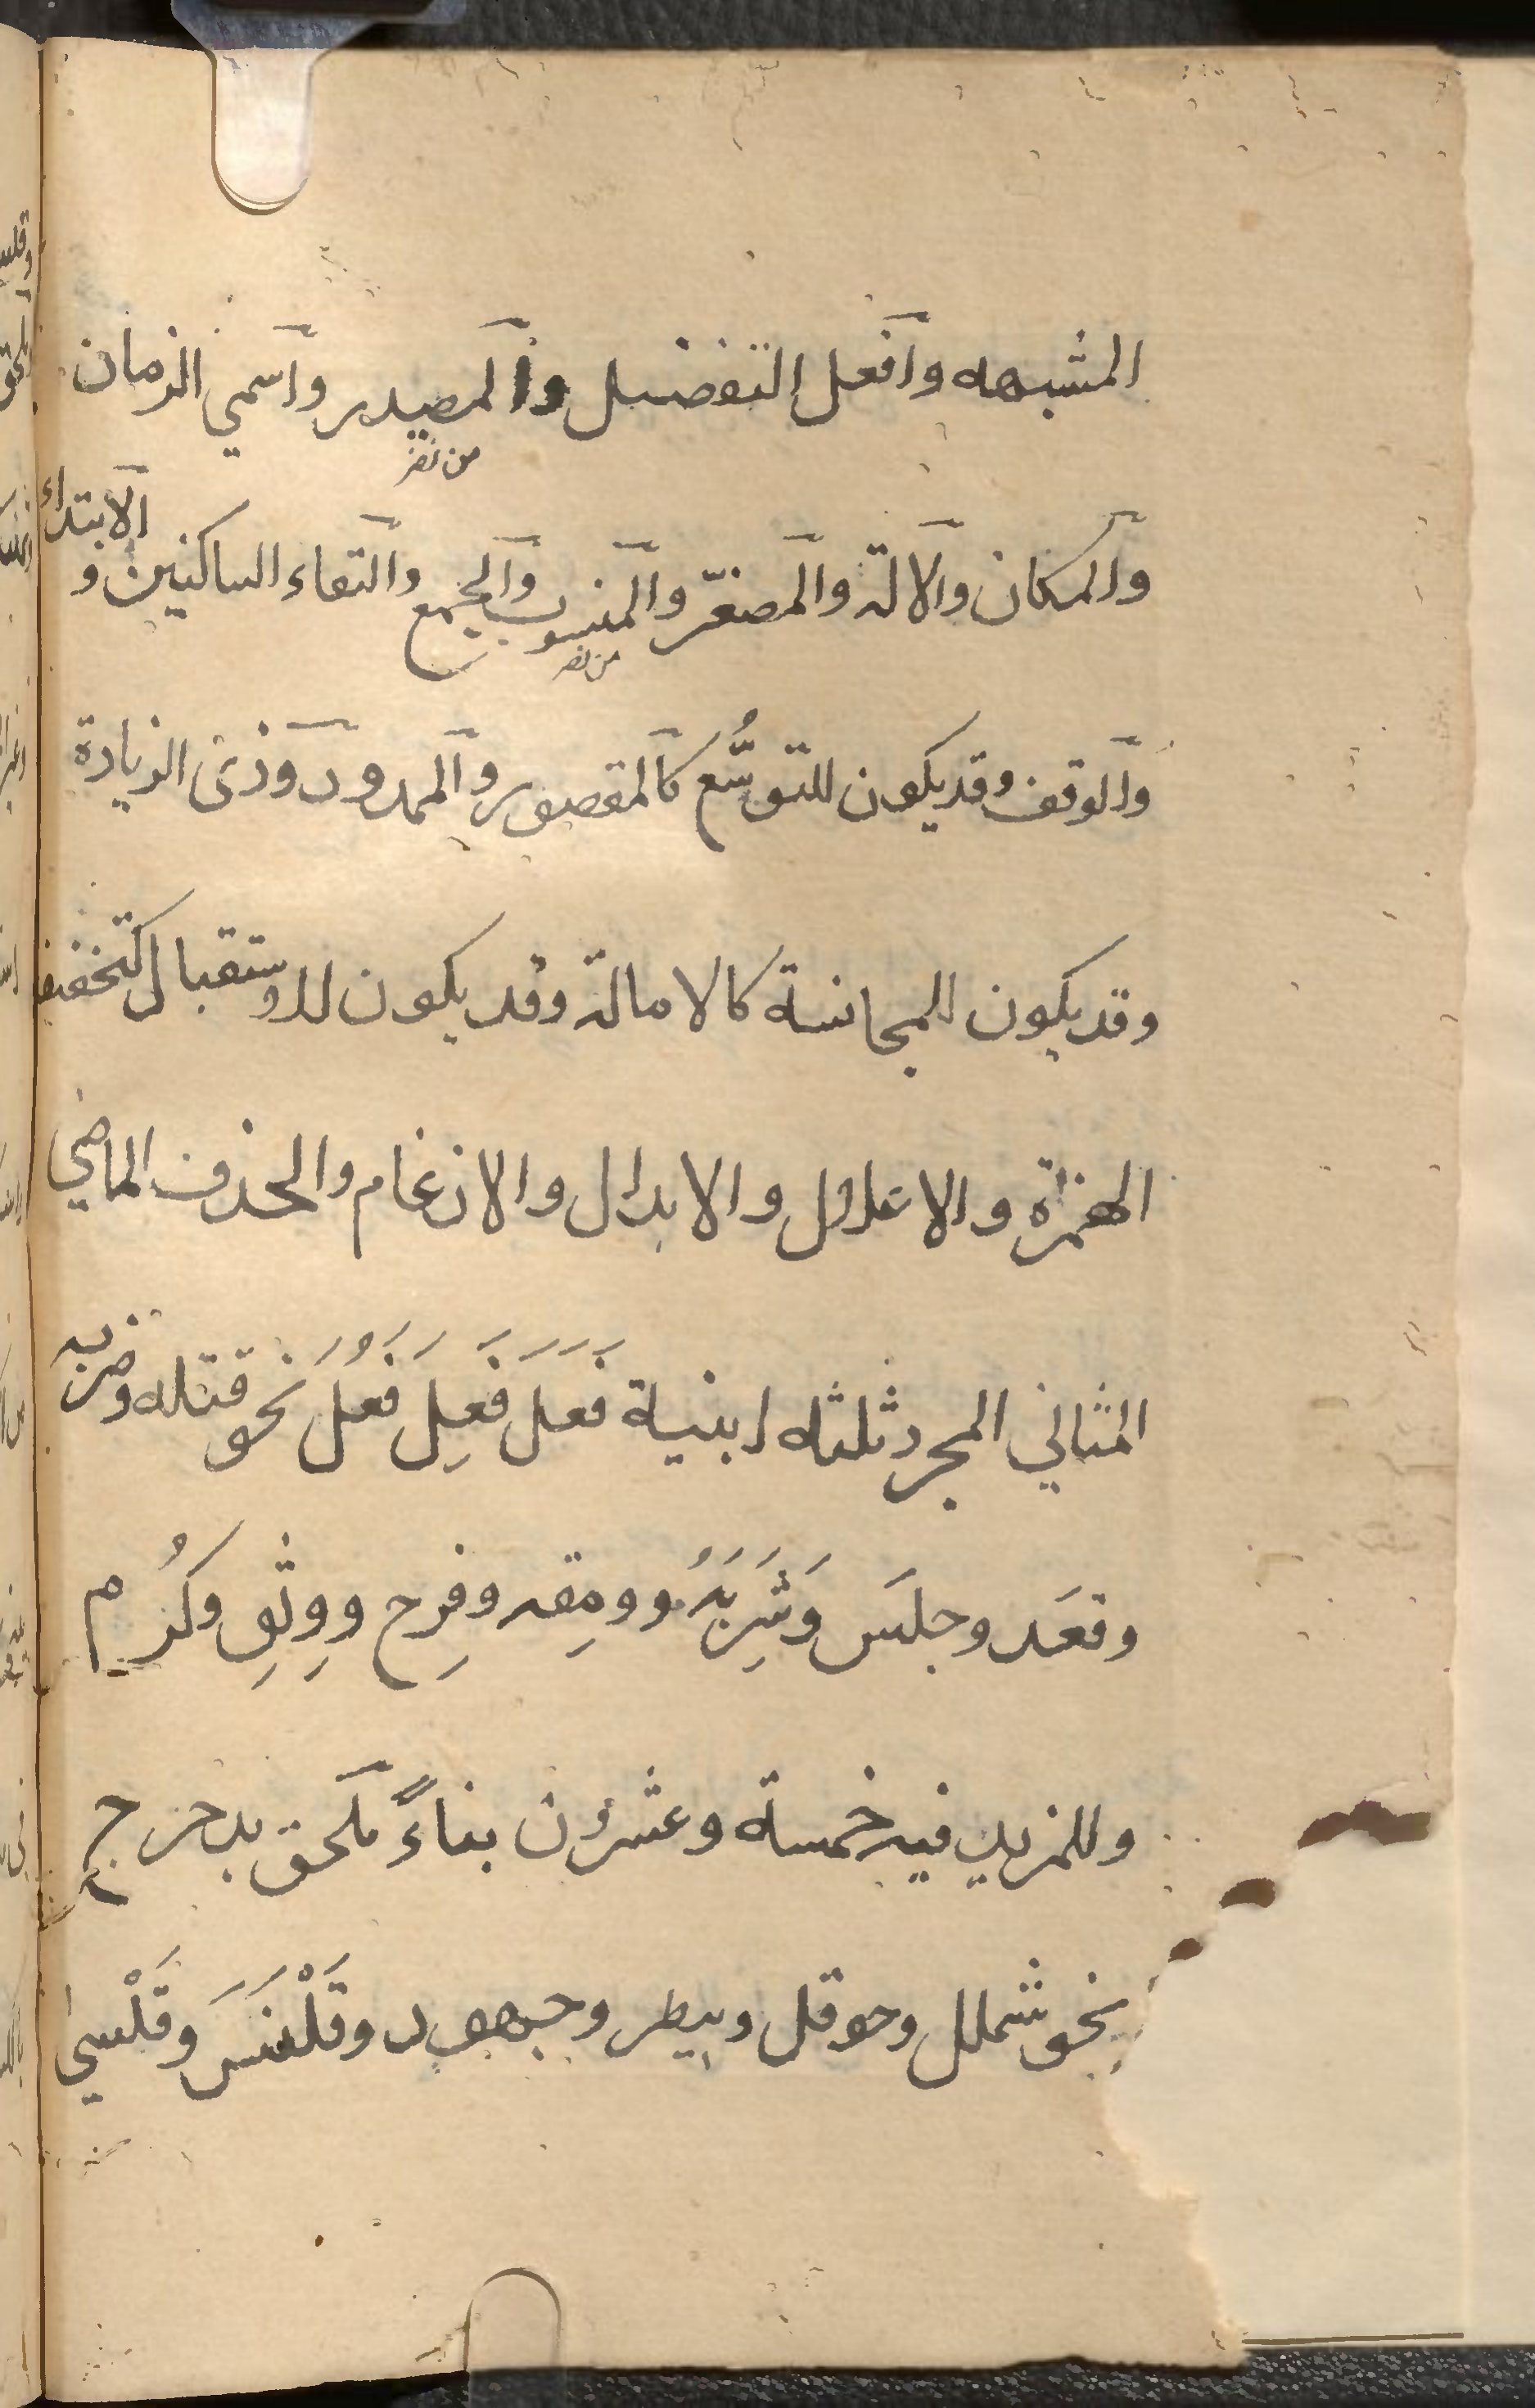 المشبهه وافعل التفضيل والمصدر واسمي الزمان
من نصر
والمكان والالة والمصغّر والمنسوب والجمع والتقاء الساكنين و الابتداء
من نصر
والوقف وقد يكون للتوسُّع كالمقصور والممدود وذى الزيادة
وقد يكون للمجانسة كالامالة وقد يكون للاستقبال كتخفيف
الهمزة والاعلال والابدال والادغام والحذف الماضي
المثاني المجرد ثلثه ابنية فَعَلَ فَعِلَ فَعُلَ نحو قتله وضربه
وقعَد وجلَس وَشَرِبَهُ وومِقه وفرِح ووثِق وكرُم
وللمزيد فيه خمسة وعشرون بناءً ملحق بدحرج
نحو شملل وحوقل وبيطر وجهور وقَلْنَسَ وقَلْسىٰ